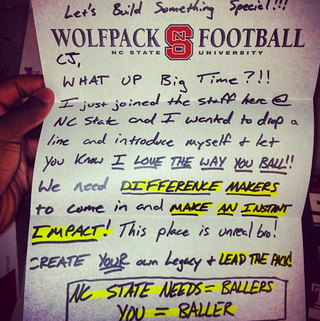 Let's Build Something Special!!!
WOLFPACK S FOOTBALL
NC STATE UNIVERSITY
CJ,
WHAT UP Big Time?!!
I just joined the staff here @
NC State and I wanted to drop a
line and introduce myself & let
you know I LOVE THE WAY YOU BALL!!
We need DIFFERENCE MAKERS
to come in and MAKE AN INSTANT
IMPACT! This place is unreal bro!
CREATE YOUR own Legacy & LEAD THE PACK!
NC STATE NEEDS = BALLERS
YOU = BALLER